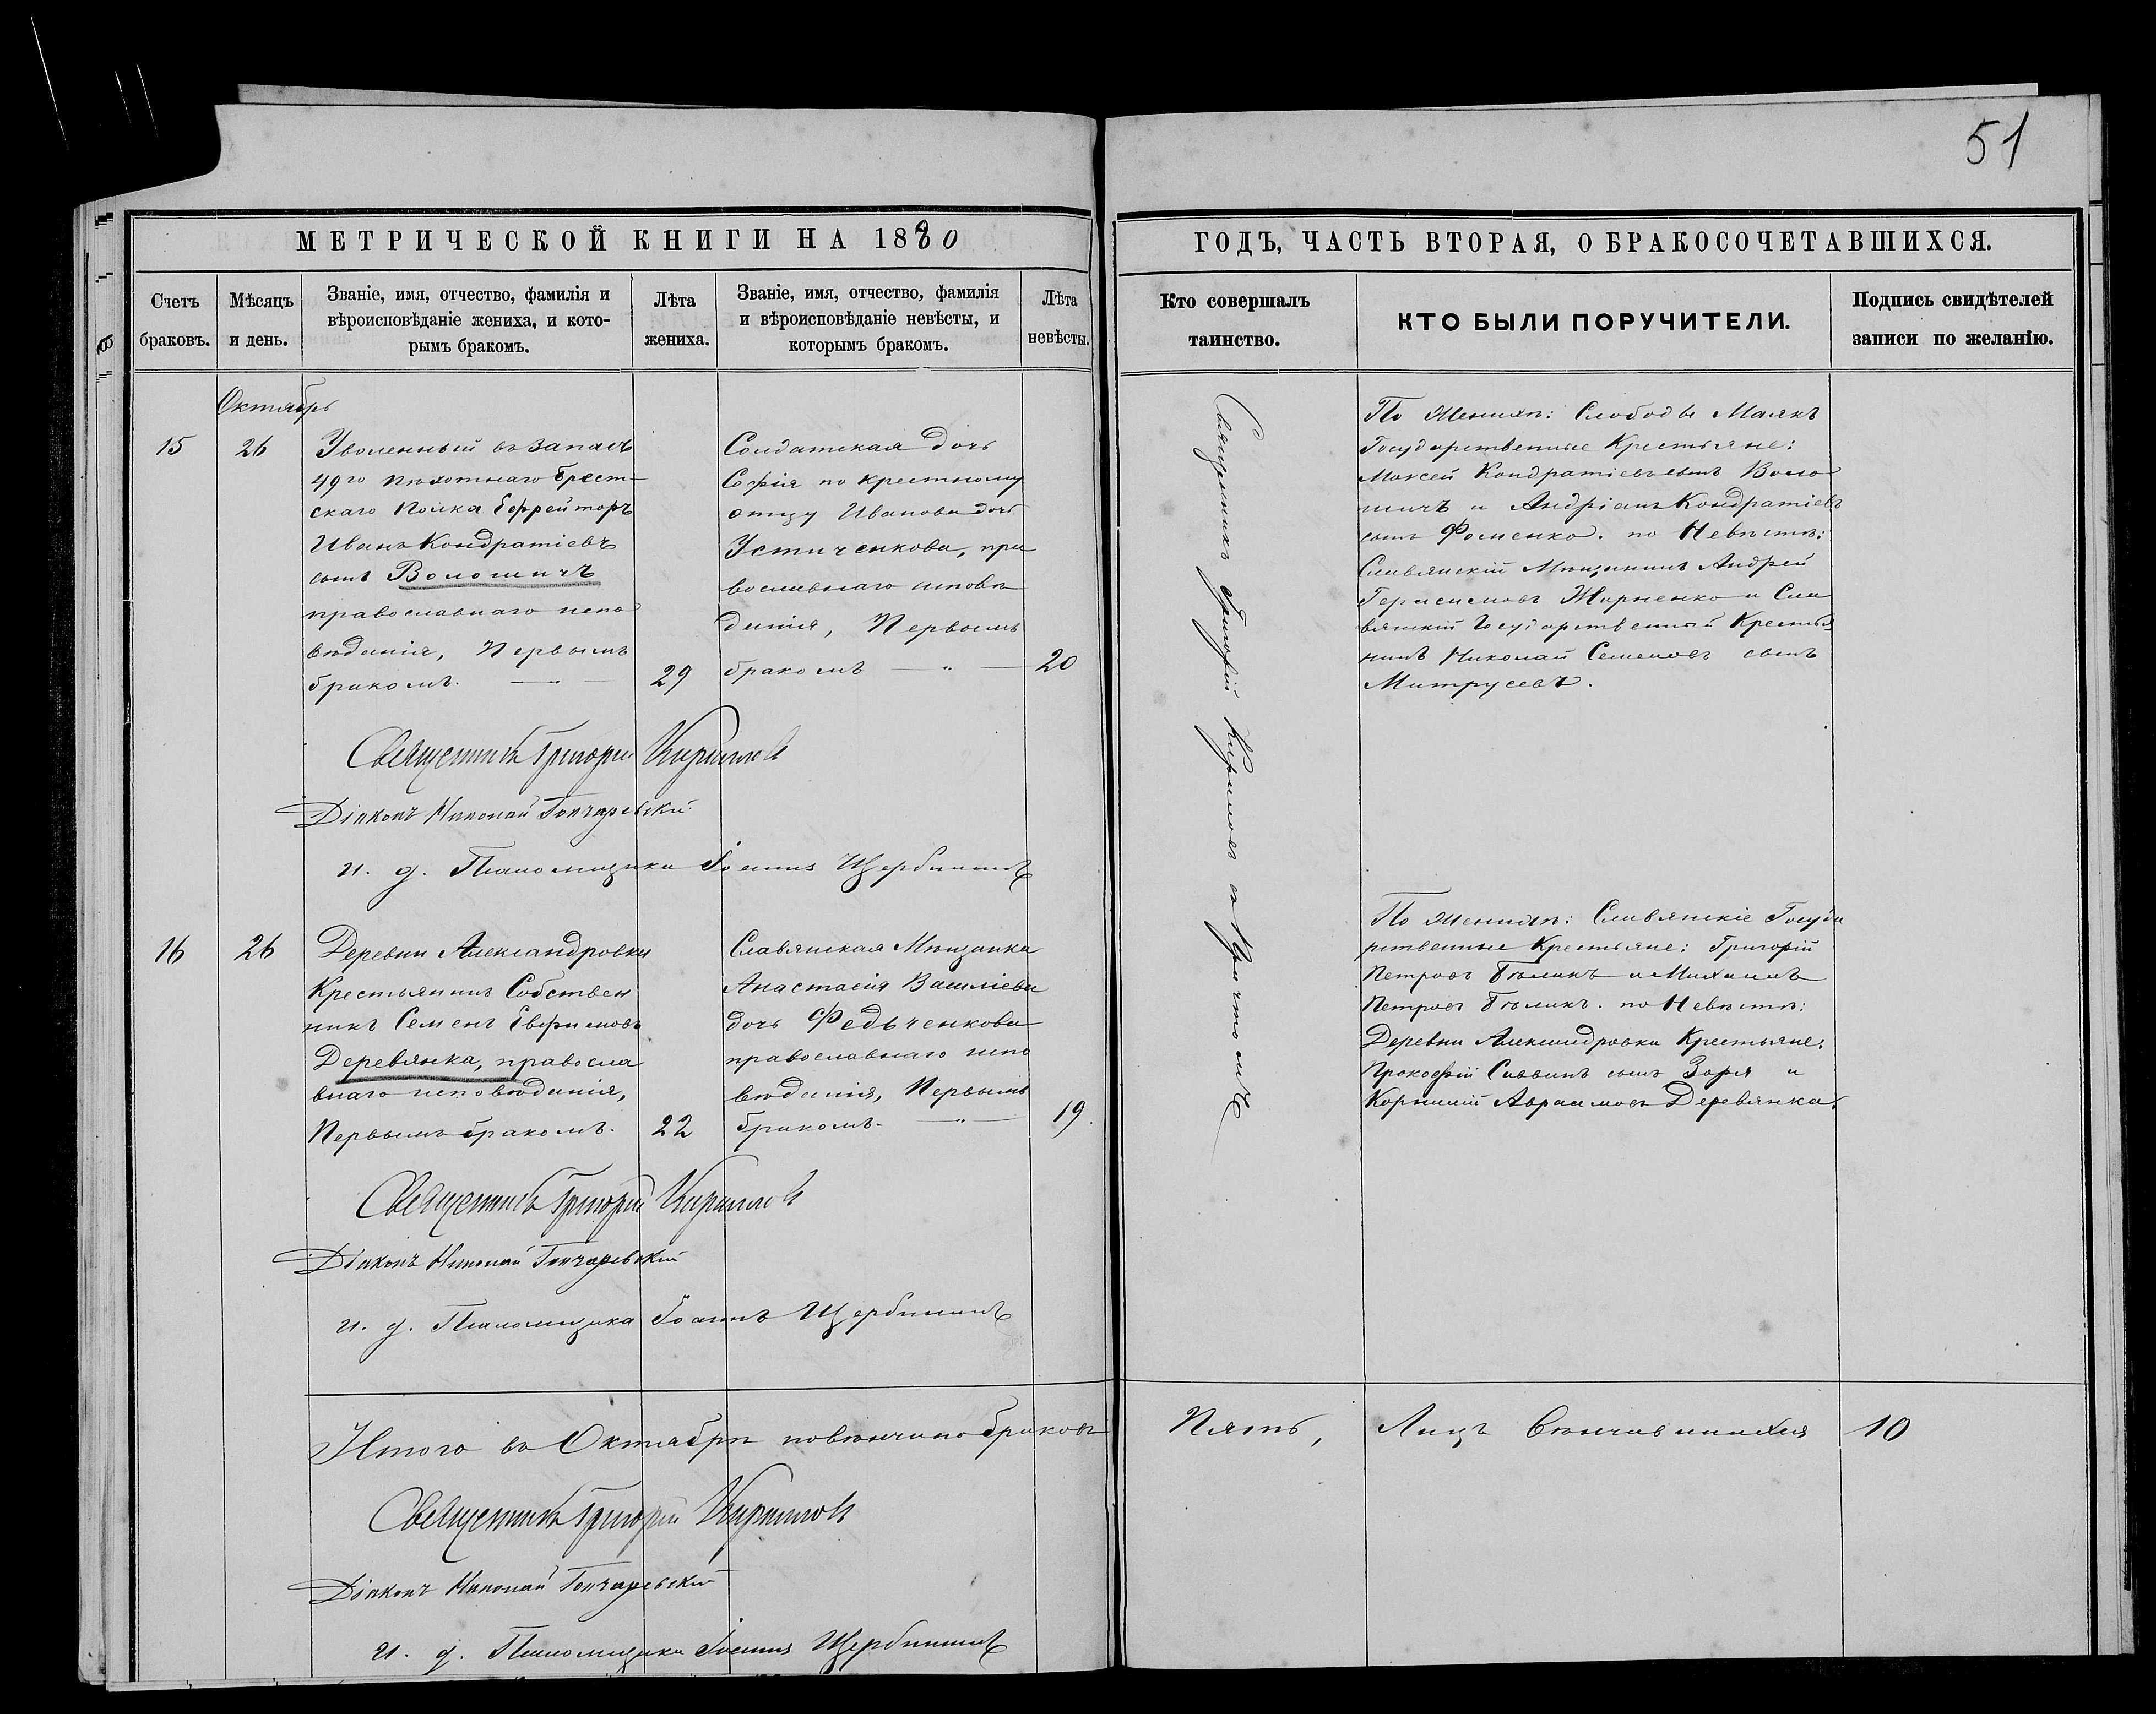 51
МЕТРИЧЕСКОЙ КНИГИ НА 1880
ГОДЪ, ЧАСТЬ ВТОРАЯ, О БРАКОСОЧЕТАВШИХСЯ.
Счетъ
браковъ.
Мѣсяцъ
и день.
Званіе, имя, отчество, фамилія и
вѣроисповѣданіе жениха, и кото-
рымъ бракомъ.
Лѣта
жениха.
Званіе, имя, отчество, фамилія
и вѣроисповѣданіе невѣсты, и
которымъ бракомъ.
Лѣта
невѣсты.
Кто совершалъ
таинство.
КТО БЫЛИ ПОРУЧИТЕЛИ.
Подпись свидѣтелей
записи по желанію.
Октябрь
15
26
Уволенный въ запасъ
49го пѣхотнаго Брест-
скаго полка Ефрейторъ
Иванъ Кондратіевъ
сынъ Волошичъ
православнаго испо
вѣданія, Первымъ
бракомъ.
29
Солдатская дочь
Софія по крестному
отцу Иванова дочь
Устиченкова, пра
вославнаго исповѣ
данія, Первымъ
бракомъ
20
Священникъ Григорій Кириловъ съ Причтомъ
По Женихѣ: Слободы Маякъ
Государственные Крестьяне:
Моисей Кондратіевъ сынъ Воло
шичъ и Андріанъ Кондратіевъ
сынъ Фоменко. по Невѣстѣ:
Славянскій Мѣщанинъ Андрей
Герасимовъ Жорненко и Сла
вянскій Государственный Крестья
нинъ Николай Семеновъ сынъ
Митрусевъ.
Священникъ Григорій Кириловъ
Діаконъ Николай Гончаревскій
и. д. Псаломщика Іоаннъ Щербининъ
16
26
Деревни Александровки
Крестьянинъ Собствен
никъ Семенъ Евфимовъ
Деревянка, правосла
внаго исповѣданія,
Первымъ бракомъ.
22
Славянская Мѣщанка
Анастасія Василіева
дочь Федьченкова
православнаго испо
вѣданія, Первымъ
бракомъ.
19.
По Женихѣ: Славянскіе Госуда
рственные Крестьяне: Григорій
Петровъ Бѣликъ и Михаилъ
Петровъ Бѣликъ. по Невѣстѣ:
Деревни Александровки Крестьяне:
Прокофій Саввинъ сынъ Заря и
Корнилій Авраамовъ Деревянка.
Священникъ Григорій Кириловъ
Діаконъ Николай Гончаревскій
и. д. Псаломщика Іоаннъ Щербининъ
Итого въ Октябрѣ повѣнчано браковъ Пять, Лицъ вѣнчавшихся 10
Священникъ Григорій Кириловъ
Діаконъ Николай Гончаревскій
и. д. Псаломщика Іоаннъ Щербининъ